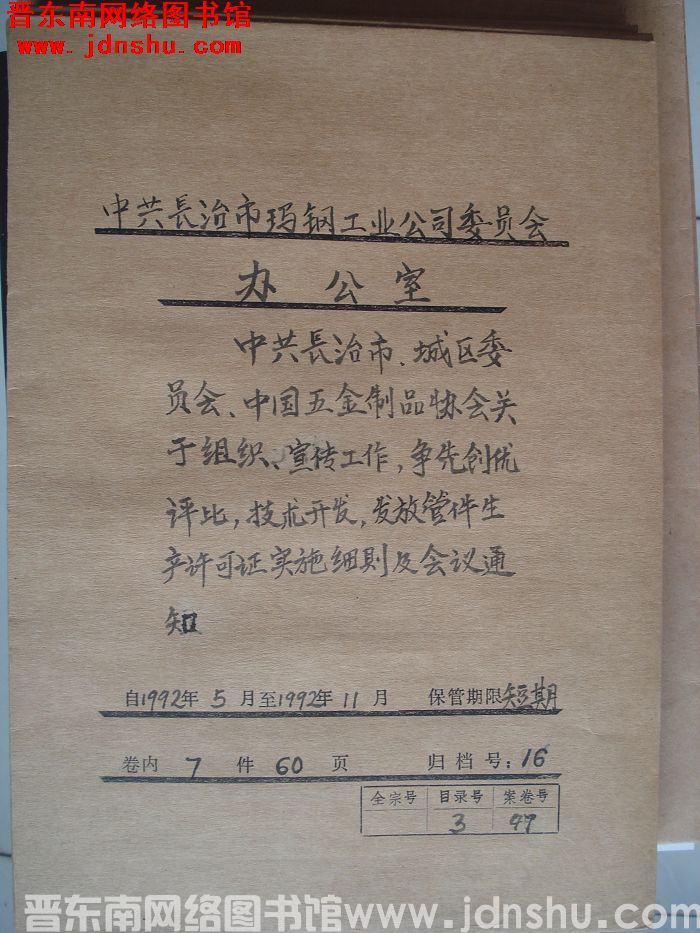 晋东南网络图书馆
www.jdnshu.com
中共長治市玛钢工业公司委员会
办公室
中共長治市、城区委
员会、中国五金制品协会关
于组织、宣传工作，争先创优
评比，技术开发，发放管件生
产许可证实施细则及会议通
知
自1992年 5 月至1992年 11 月 保管期限 短期
卷内 7 件 60 页 归档号：16
全宗号 目录号 案卷号
3 47
晋东南网络图书馆 www.jdnshu.com